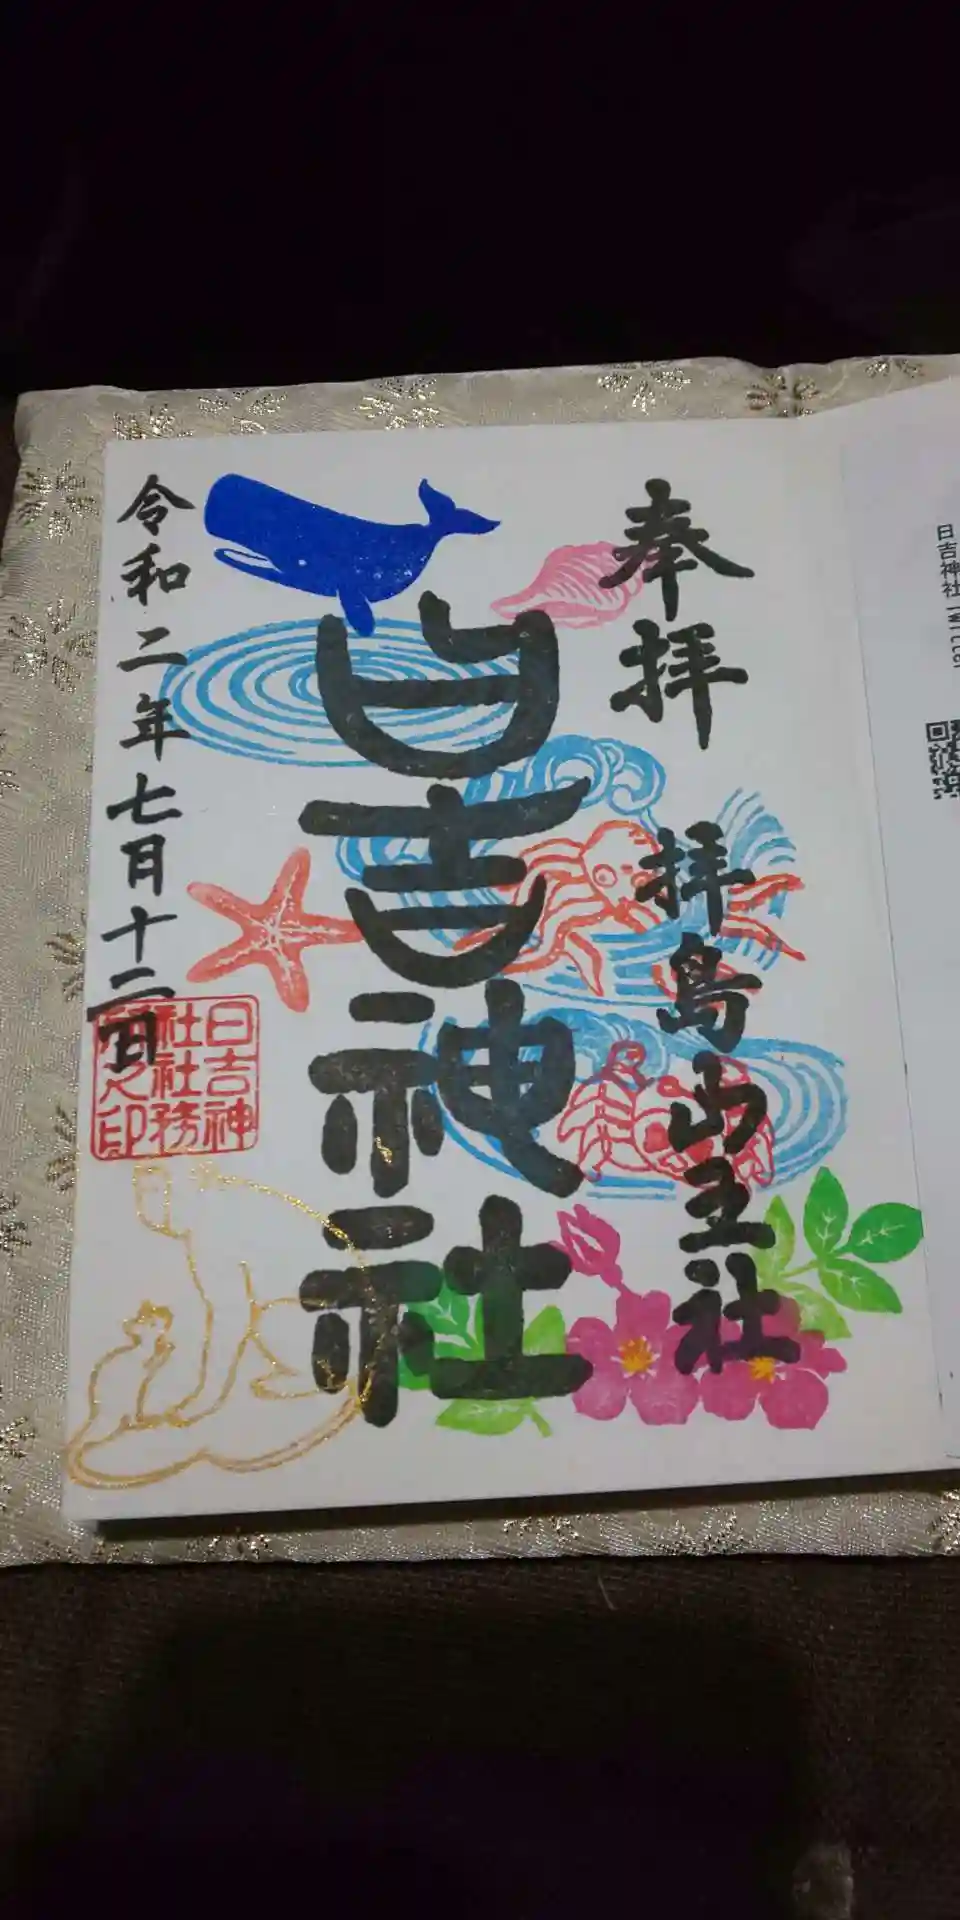 日吉神社 Twitter
奉拝
拝島山王社
日吉神社
令和二年七月十二日
日吉神
社社務
之印